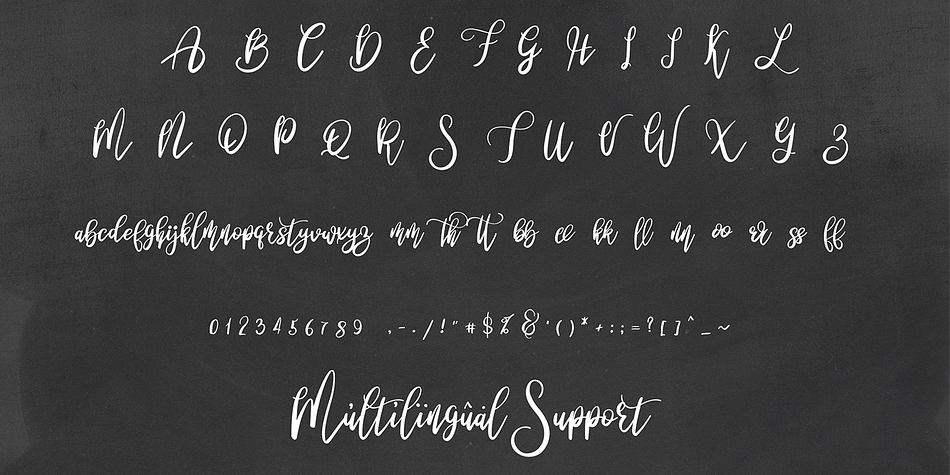 A B C D E F G H I J K L
M N O P Q R S T U V W X Y Z
abcdefghijklmnopqrstyvwxyz mm th tt bb ee kk ll nn oo rr ss ff
0123456789 ,-./!"#$%&'()*+:;=?[]^_~
Múltïlingûàl Support